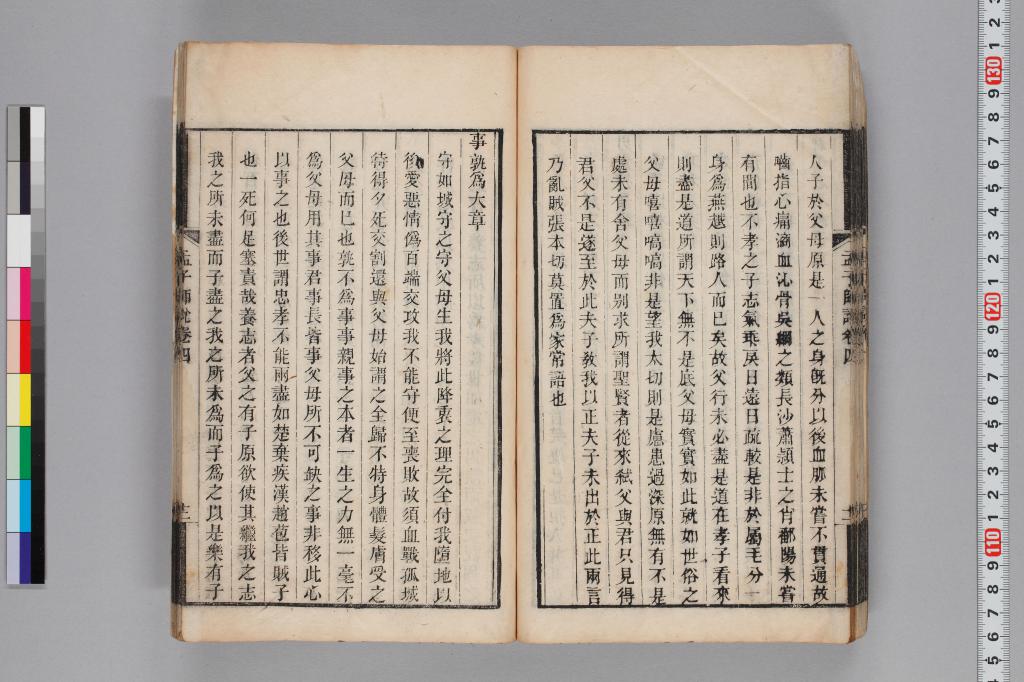 人子於父母原是一人之身旣分以後血脉未嘗不貫通故
嚙指心痛滴血沁骨吳綱之類長沙蕭頴士之肖鄱陽未嘗
有間也不孝之子志氣乖戾日遠日疏較是非於屬毛分一
身爲燕越則路人而已矣故父行未必盡是道在孝子看來
則盡是道所謂天下無不是底父母實實如此就如世俗之
父母嘻嘻嗃嗃非是望我太切則是慮患過深原無有不是
處未有舍父母而别求所謂聖賢者從來弑父與君只見得
君父不是遂至於此夫子敎我以正夫子未出於正此兩言
乃亂賊張本切莫置爲家常語也
孟子師說卷四
事孰爲大章
守如城守之守父母生我將此降衷之理完全付我墮地以
後愛惡情僞百端交攻我不能守便至喪敗故須血戰孤城
待得夕死交割還與父母始謂之全歸不特身體髮膚受之
父母而已也孰不爲事事親事之本者一生之力無一毫不
爲父母用其事君事長皆事父母所不可缺之事非移此心
以事之也後世謂忠孝不能兩盡如楚棄疾漢趙苞皆賊子
也一死何足塞責哉養志者父之有子原欲使其繼我之志
我之所未盡而子盡之我之所未爲而子爲之以是樂有子
孟子師說卷四